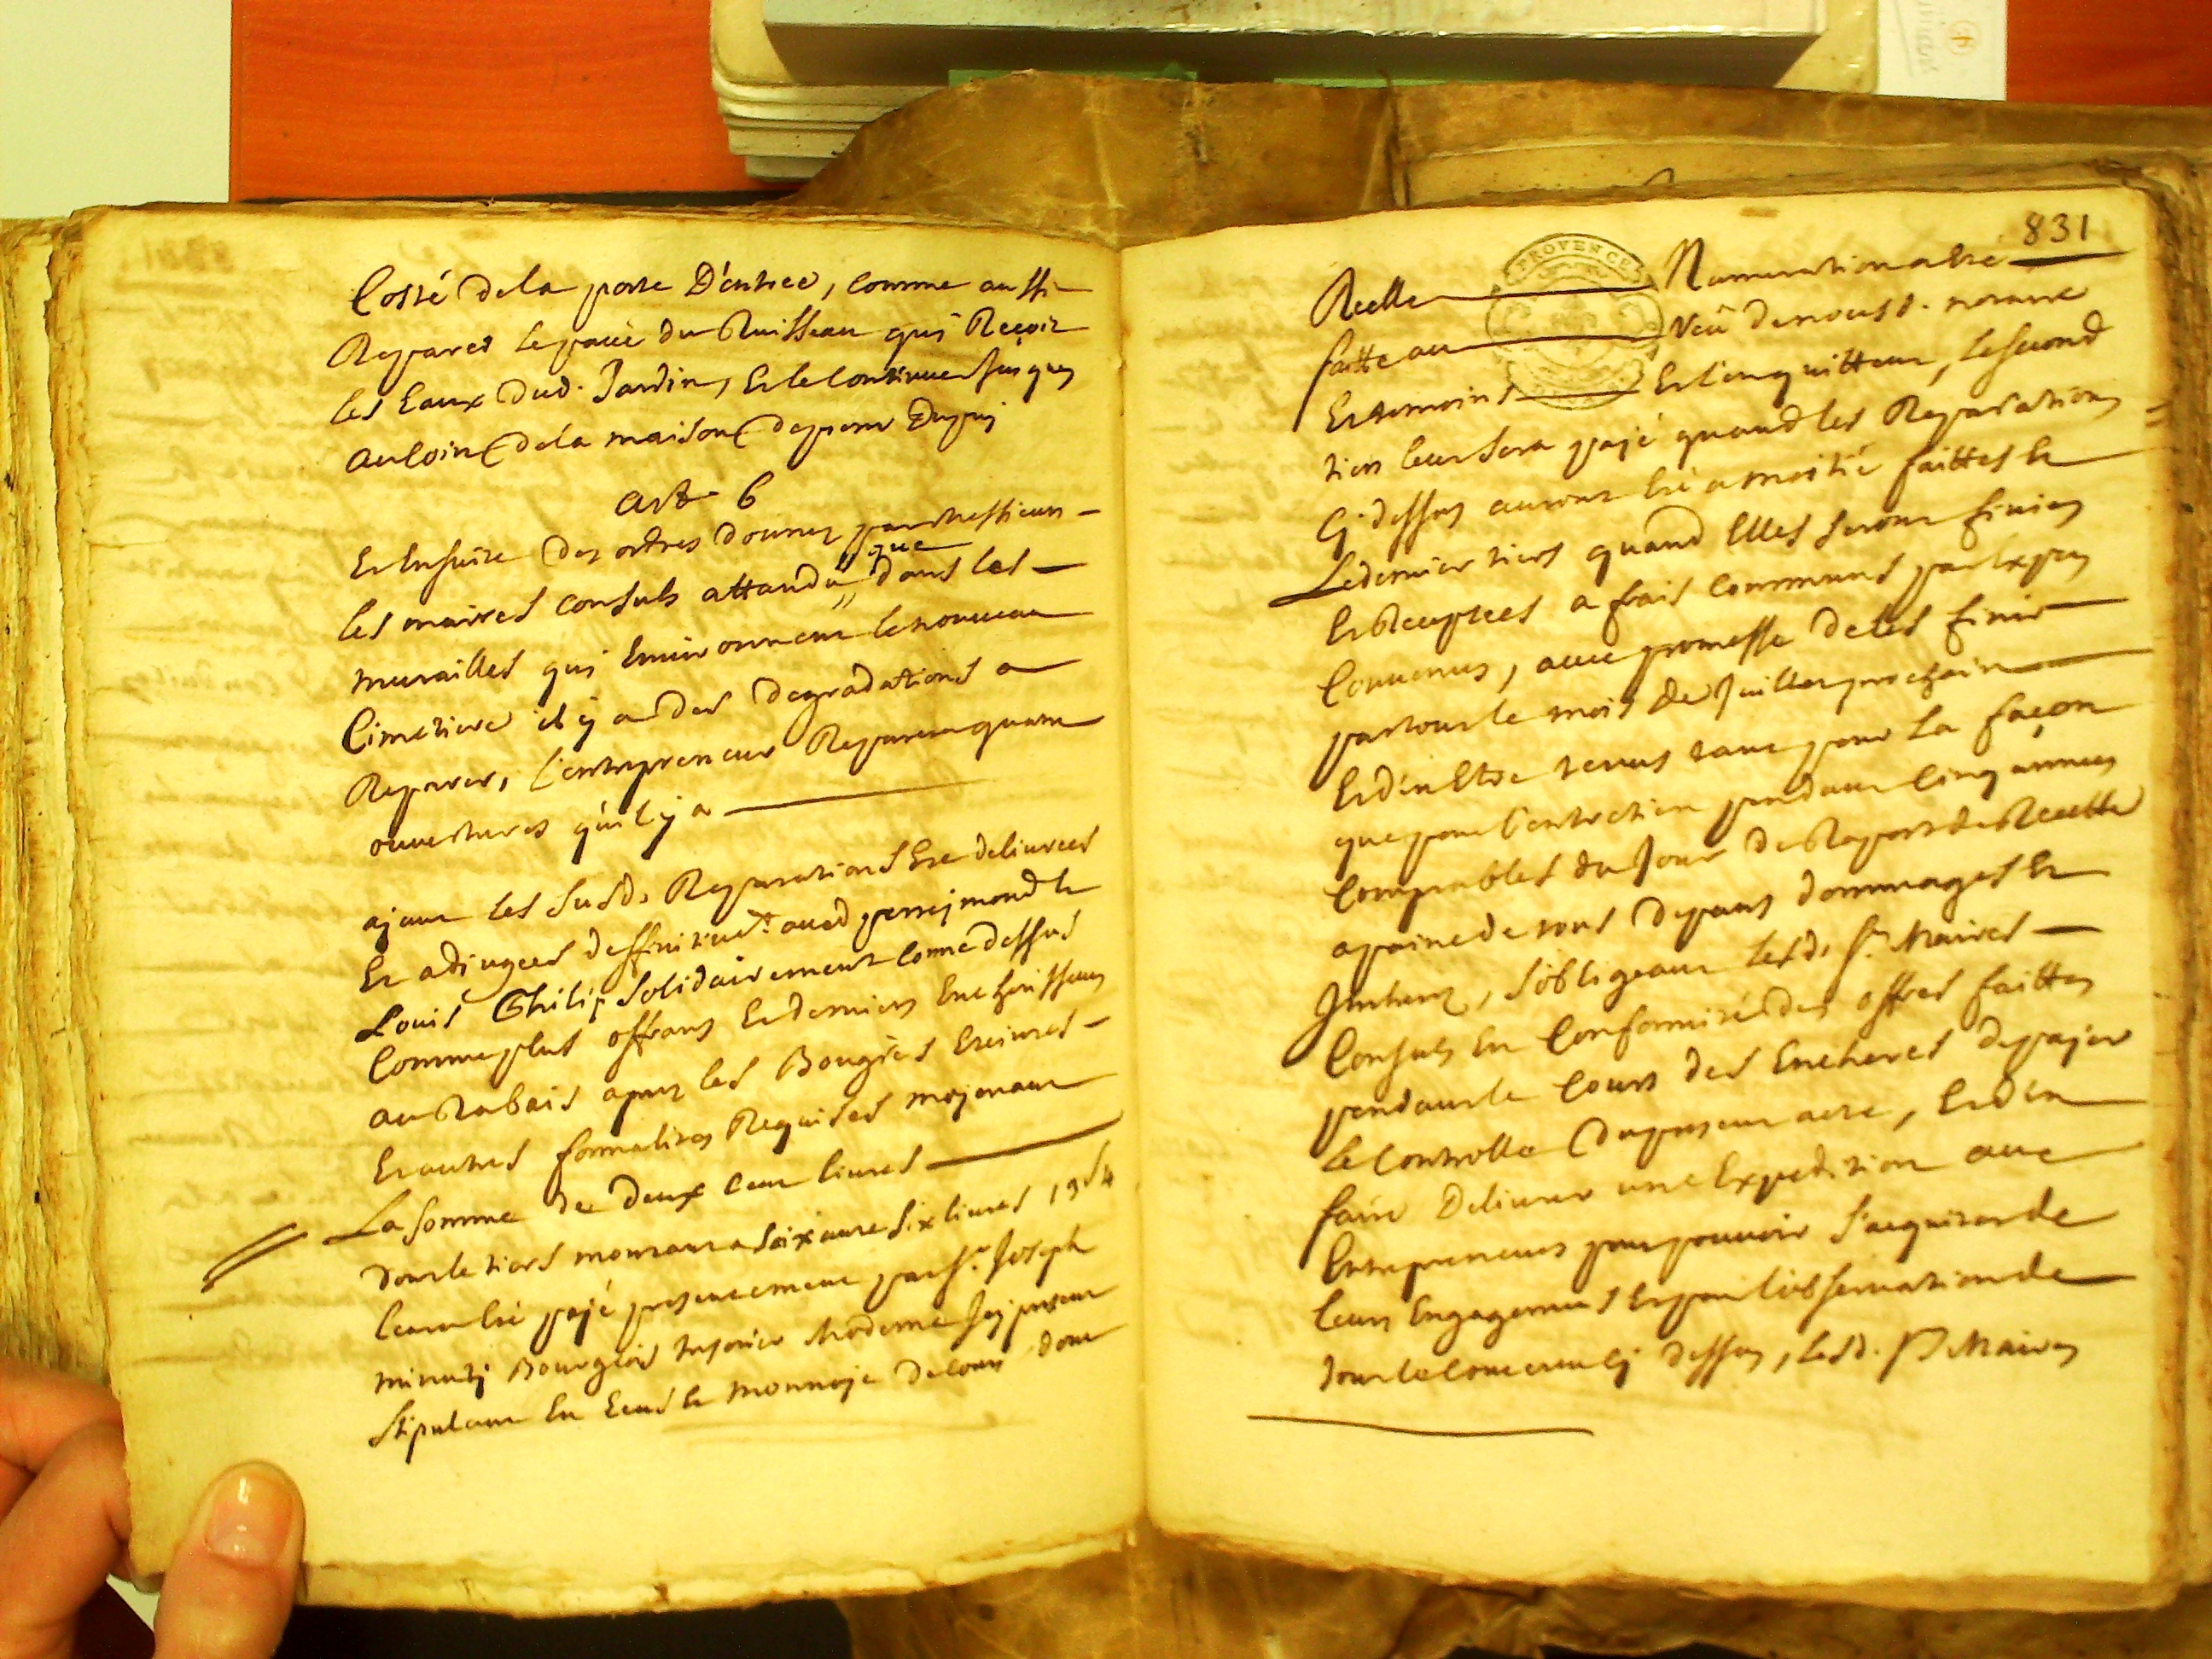 Costé de la porte D'entreé, comme aussi
Reparer le pavé du Ruisseau qui Reçoit
les Eaux dud. Jardin, Et le Continuer Jusques
au Coin de la maison de pierre Dupuj
art 6
Et Ensuite des ordres donnez par messieurs
les maires consuls attandu que dans les
murailles qui Environnent le nouveau
Cimetiere il y a des degradations a
Reparer, l'entrepreneur Reparera quatre
ouvertures qu'il y a
ajant les susd. Reparations Eté delivrées
Et adjugées deffinitivet. aud
Louis Philip solidairement comme dessus
Comme plus offrans Et derniers Encherisseurs
au Rabais aprez les Bougies Eteintes
Et autres formalites Requises mojenant
La somme de deux cent livres
dont le tiers montant a soixante six livres 13 s 4
leur a été pajé presentement par sr. Joseph
minuty Bourgeois tresorier moderne Icy present
stipulant En Ecus Et monnoje de cours dont
831
PROVENCE
Reelle Numeration a Eté
faitte au Veu de nous d. notaire
Et temoins Et l'en quittent, le second
tiers leur sera pajé quand les Reparations
Cj dessus auront Eté a moitié faittes Et
Le dernier tiers quand Elles seront finies
Et Receptées a frais communs par Expers
Convenus, avec promesse de les finir
par tout le mois de Juillet prochain
Et d'en Etre tenus tant pour la façon
que pour l'entretien pendant Cinq années
Comptables du Jour du Raport de Recette
a paine de tous depans dommages Et
Interetz, s'obligeant lesd. srs Maires
Consuls En Conformité des offres faittes
pendant le Cours des Encheres de pajer
le Controlle du present acte, Et d'en
faire Delivrer une Expedition aux
Entrepreneurs pour pouvoir s'aquiter de
leurs Engagemens Et pour l'observation de
tout le contenu Cj dessus, lesd. srs Maires